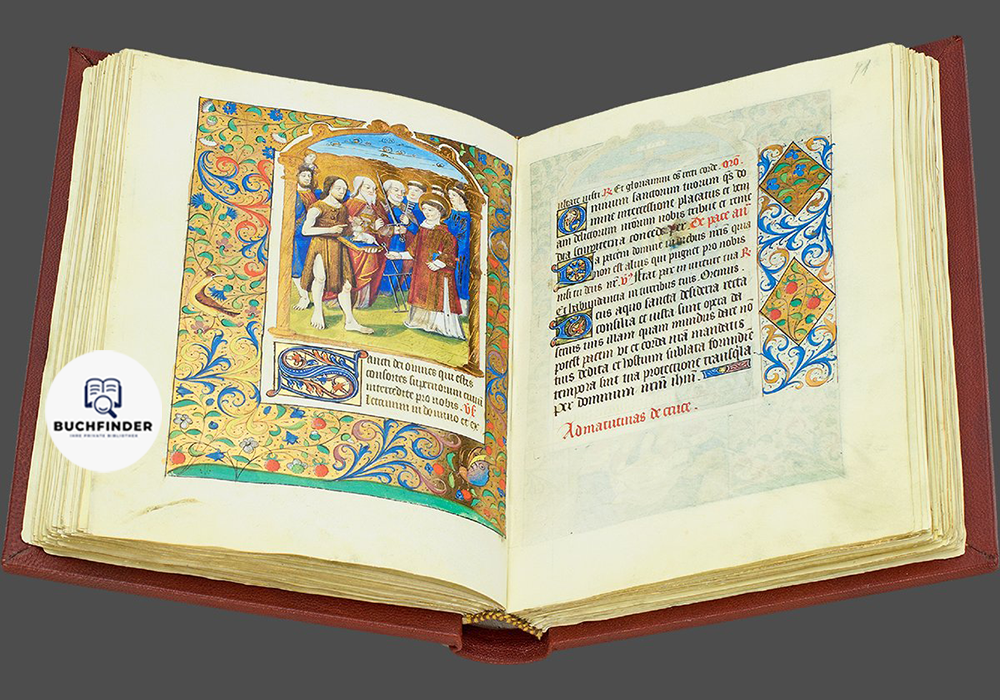 BUCHFINDER
IHRE PRIVATE BIBLIOTHEK
Sancti dei omnes qui estis
consortes supernorum civiũ
intercedite pro nobis. Vs
Letamini in domino et ex
71
ultate iusti. R Et gloriamini oẽs recti corde. Orõ.
Omnium sanctorum tuorum qs do
mine intercessione placatus et veni
am delictorum nostrorum nobis tribue et reme
dia sempiterna concede Per. De pace añ
Da pacem domine in diebus nr̃is quia
non est alius qui pugnet pro nobis
nisi tu deus nr̃. Vs Fiat pax in virtute tua R
Et habundantia in turribus tuis. Oremus.
Deus a quo sancta desideria recta
consilia et iusta sunt opera da
servis tuis illam quam mundus dare nõ
potest pacem ut et corda nr̃a mandatis
tuis dedita et hostium sublata formidine
tempora sint tua protectione tranquilla
Per dominum nrm̃ ihm̃.
Ad matutinas de cruce.